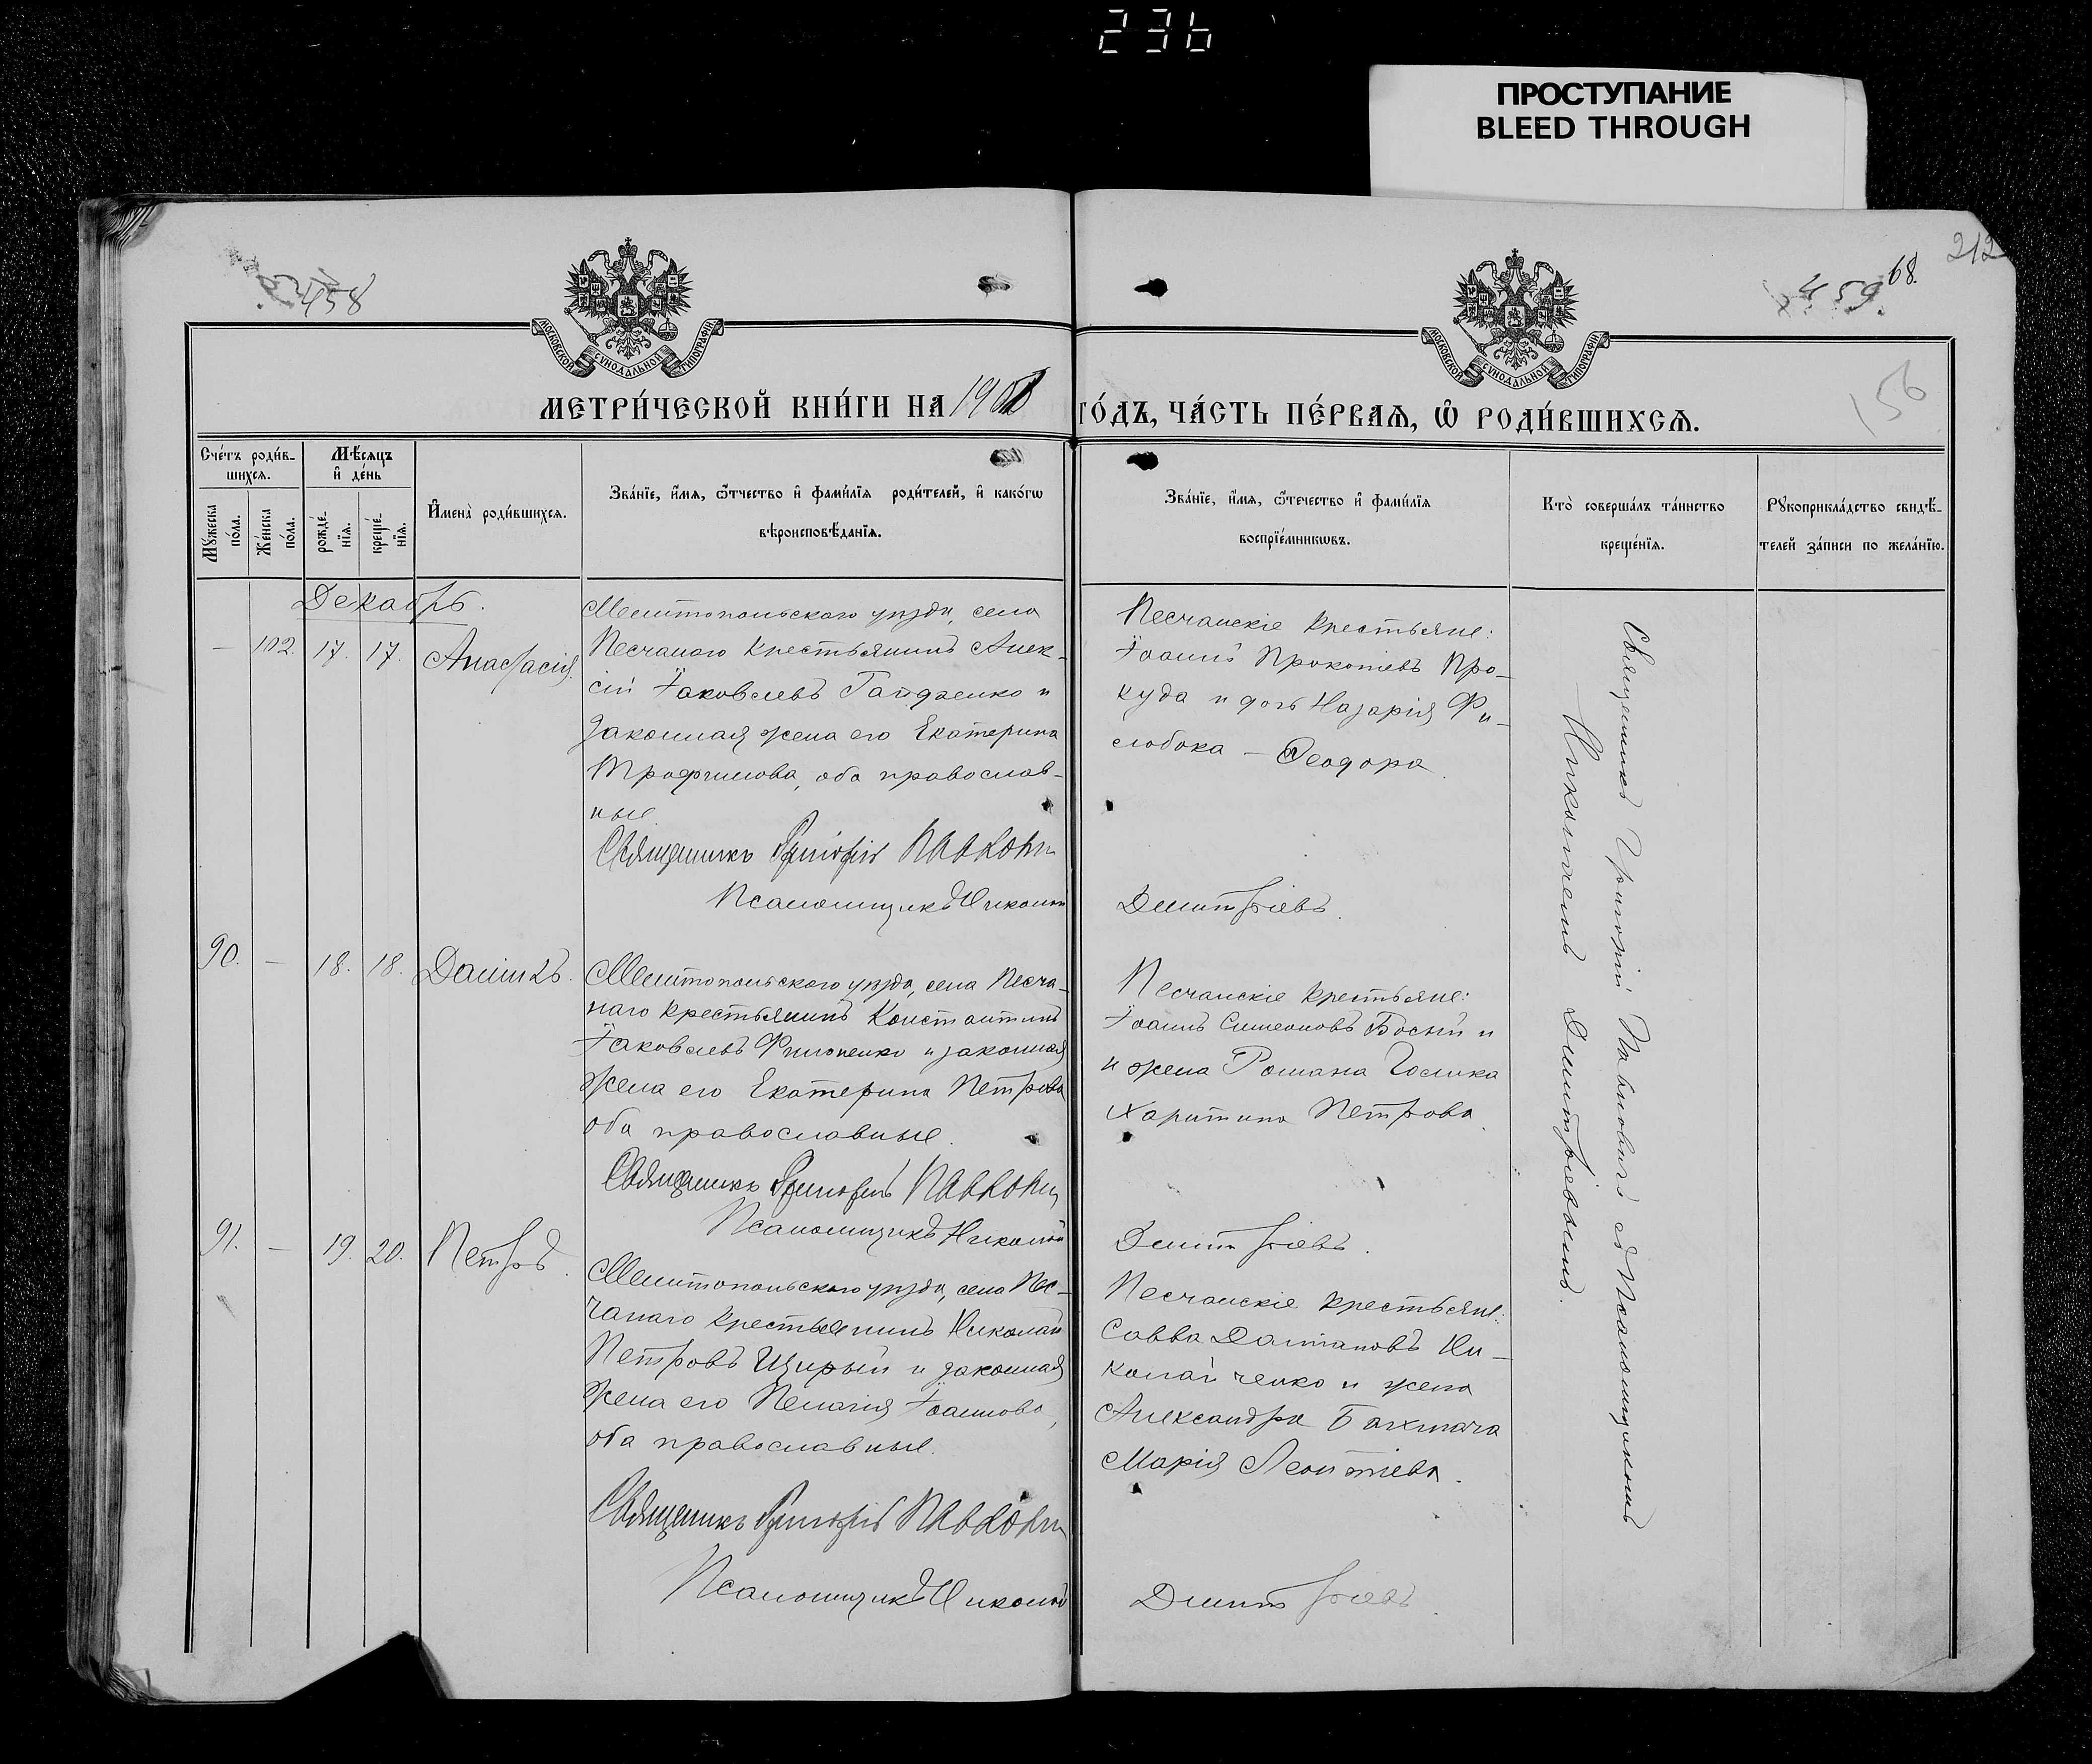 236
ПРОСТУПАНИЕ
BLEED THROUGH
212
68.
458
459.
156
МОСКОВСКОЙ СѴНОДАЛЬНОЙ ТИПОГРАФІИ
МОСКОВСКОЙ СѴНОДАЛЬНОЙ ТИПОГРАФІИ
МЕТРИ́ЧЕСКОЙ КНИ́ГИ НА 190
ГО́ДЪ, ЧА́СТЬ ПЕ́РВАѦ, Ѡ РОДИ́ВШИХСѦ.
Сче́тъ роди́в-
шихсѧ.
Мꙋжеска
по́ла.
Же́нска
по́ла.
Мѣ́сѧцъ
и҆ де́нь
рожде́-
нїѧ.
креще́-
нїѧ.
И҆мена̀ роди́вшихсѧ.
Зва́нїе, и҆́мѧ, ѻ҆́тчество и҆ фами́лїѧ роди́телей, и҆ како́гѡ
вѣроисповѣ́данїѧ.
Зва́нїе, и҆́мѧ, ѻ҆́течество и҆ фами́лїѧ
воспрїе́мникѡвъ.
Кто̀ соверша́лъ та́инство
креще́нїѧ.
Рꙋкоприкла́дство свидѣ́-
телей за́писи по жела́нїю.
Декабрь.
— 102. 17. 17. Анастасія.
Мелитопольскаго уѣзда, села
Песчанаго крестьянинъ Алек-
сій Іаковлевъ Гайдзенко и
законная жена его Екатерина
Трофимова, оба православ-
ные
Священникъ Григорій Павлови
Псаломщикъ Николай
Песчанскіе крестьяне:
Іоаннъ Прокопіевъ Про-
куда и дочь Назарія Фи-
слобока — Ѳеодора.
Димитріевъ.
90. — 18. 18. Даніилъ.
Мелитопольскаго уѣзда, села Песча-
наго крестьянинъ Константинъ
Іаковлевъ Филоненко и законная
жена его Екатерина Петрова
оба православные.
Священникъ Григорій Павлови
Псаломщикъ Николай
Песчанскіе крестьяне:
Іоаннъ Симеоновъ Босый и
и жена Романа Голика
Харитина Петрова.
Димитріевъ.
91. — 19. 20. Петръ.
Мелитопольскаго уѣзда, села Пес-
чанаго крестьянинъ Николай
Петровъ Щирый и законная
жена его Пелагія Іоаннова,
оба православные.
Священникъ Григорій Павлови
Псаломщикъ Николай
Песчанскіе крестьяне:
Савва Даміановъ Ни-
колайченко и жена
Александра Бахмача
Марія Леонтіева.
Димитріевъ.
Священникъ Григорій Павловичъ съ Псаломщикомъ
Николаемъ Димитріевымъ.